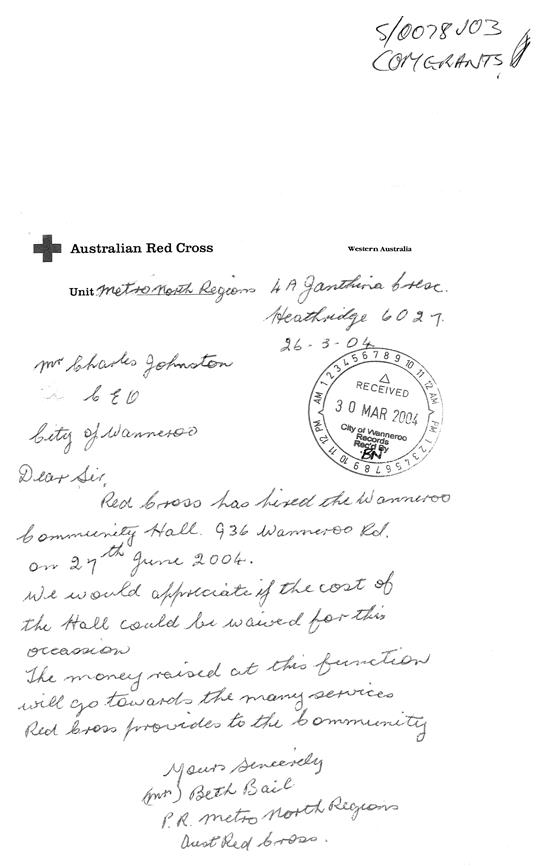 S/0078V03
COMGRANTS
Australian Red Cross
Western Australia
Unit Metro North Regions 4A Janthina Cresc.
Heathridge 6027.
26-3-04.
Mr Charles Johnston
CEO
City of Wanneroo
AM 1 2 3 4 5 6 7 8 9 10 11 12 AM
PM 1 2 3 4 5 6 7 8 9 10 11 12 PM
RECEIVED
30 MAR 2004
City of Wanneroo
Records
Rec'd By
BN
Dear Sir,
Red Cross has hired the Wanneroo
Community Hall. 936 Wanneroo Rd.
on 27th June 2004.
We would appreciate if the cost of
the Hall could be waived for this
occassion
The money raised at this function
will go towards the many services
Red Cross provides to the Community
Yours Sincerely
Beth Bail
P.R. Metro North Regions
Aust Red Cross.